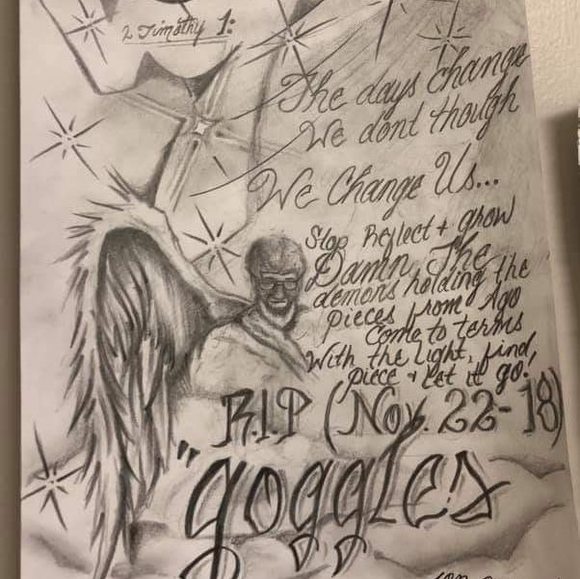 2 Timothy 1:
The days change
We dont though
We Change Us...
Stop Reflect + grow
Damn The
demons holding the
pieces from Ago
Come to terms
With the Light, find,
piece + Let it go.
R.I.P (Nov. 22-18)
"goggles